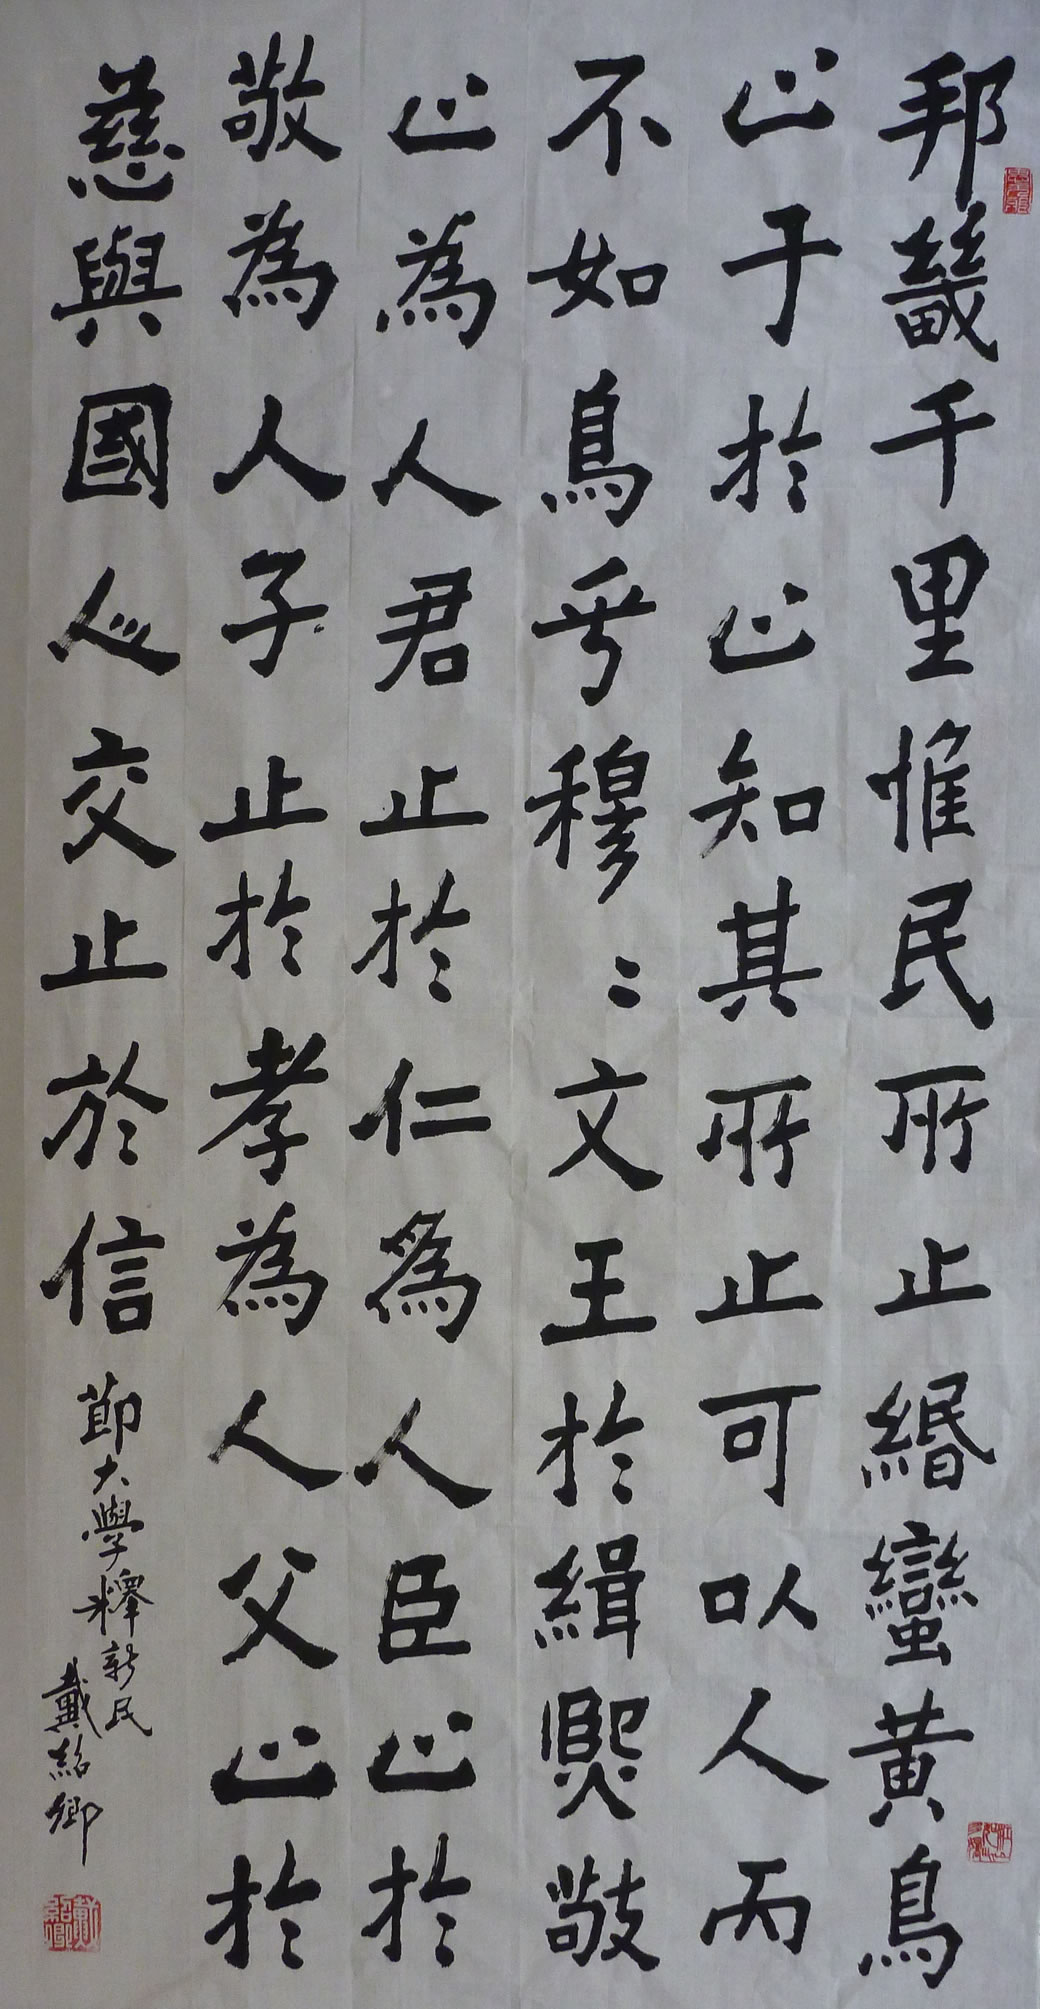 邦畿千里惟民所止緡蠻黃鳥
止于於止知其所止可以人而
不如鳥乎穆〻文王於緝熙敬
止為人君止於仁為人臣止於
敬為人子止於孝為人父止於
慈與國人交止於信
節大學釋新民
戴紹卿
戴紹卿